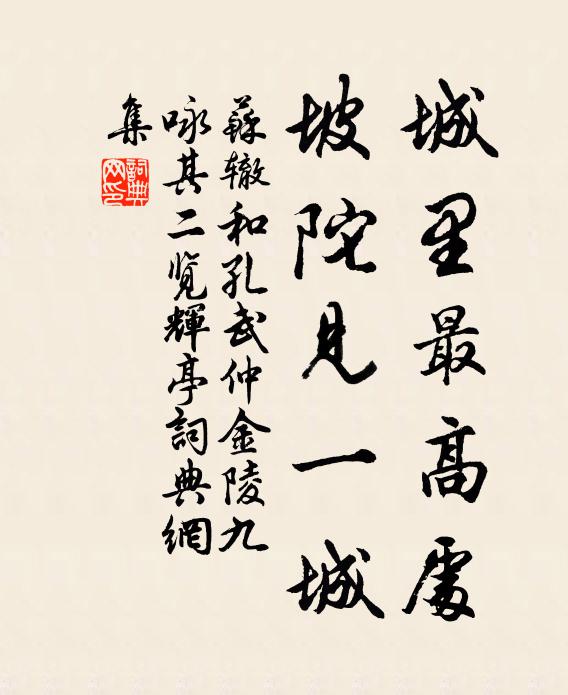 城里最高處
坡陀見一城
蘇辙和孔武仲金陵九
咏其二览輝亭詞典網
集
詞典網印